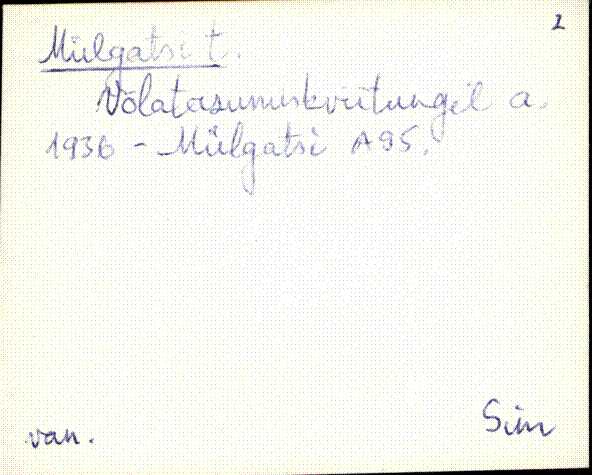 2
Mülgatsi t.
Võlatasumiskviitungil a.
1936 - Mülgatsi A 95.
van.
Sim